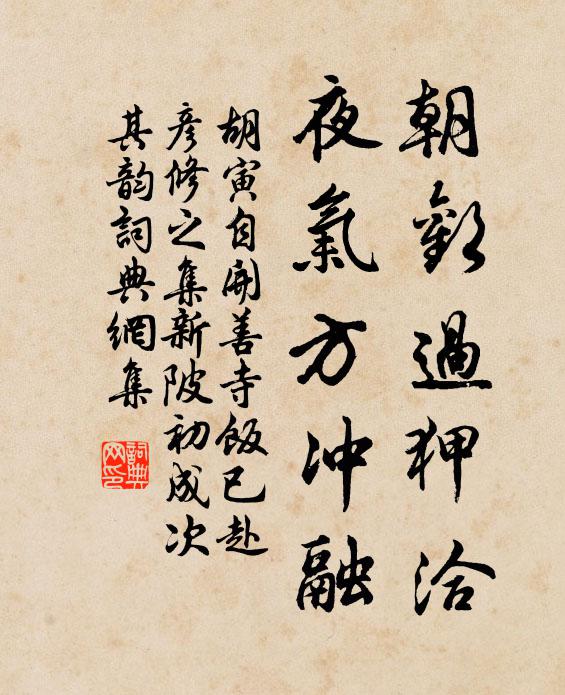 朝歡過狎洽
夜氣方沖融
胡寅自開善寺飯已赴
彥修之集新陂初成次
其韵詞典網集
詞典
网印